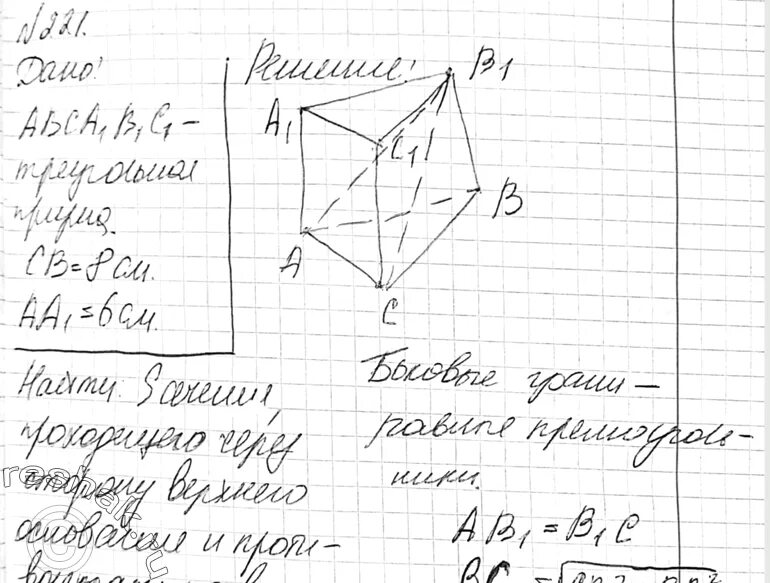 №221.
Дано:
ABCA₁B₁C₁ –
треугольная
призма.
CB = 8 см.
AA₁ = 6 см.
Решение:
A₁
B₁
C₁
A
B
C
Найти: Sсечения,
проходящего через
сторону верхнего
основания и проти-
Боковые грани –
равные прямоуголь-
ники.
AB₁ = B₁C
reshak.ru